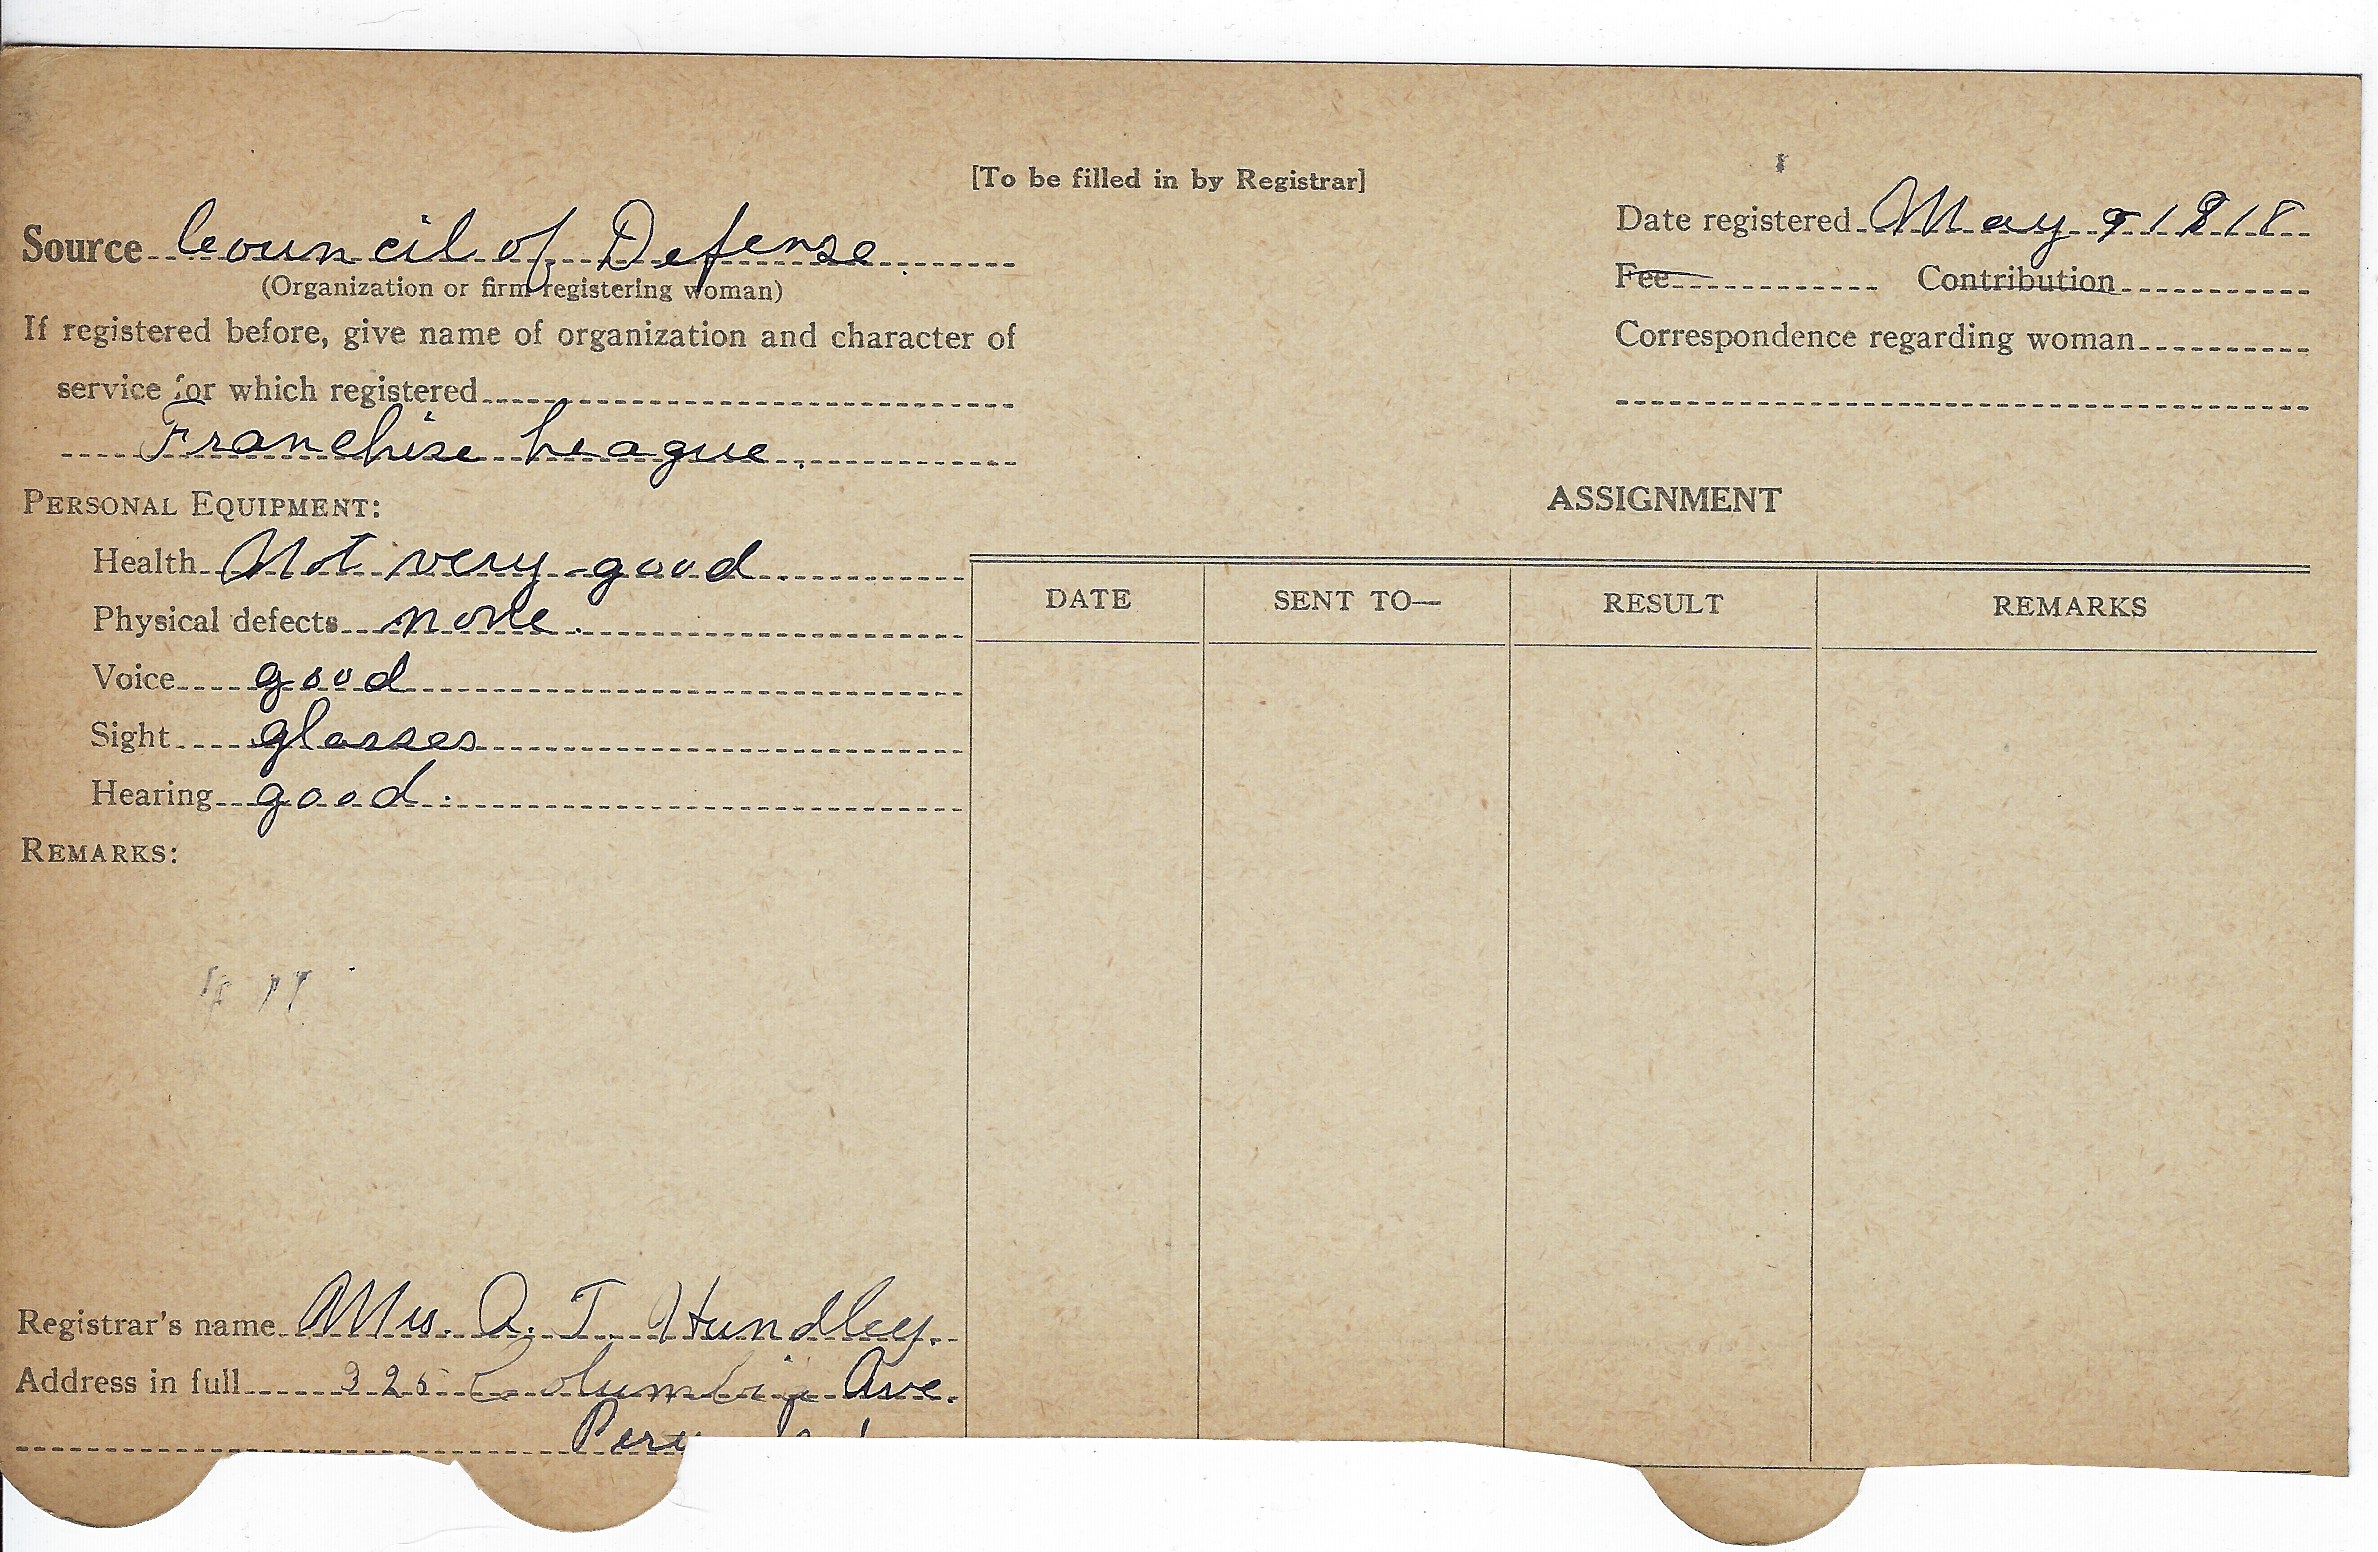 [To be filled in by Registrar]
Source Council of Defense
(Organization or firm registering woman)
If registered before, give name of organization and character of
service for which registered
Franchise League.
PERSONAL EQUIPMENT:
Health Not very good
Physical defects none.
Voice good
Sight glasses
Hearing good.
REMARKS:
Registrar's name Mrs. A. T. Hundley.
Address in full 325 Columbia Ave.
Peru
Date registered May 9 1918
Fee Contribution
Correspondence regarding woman
ASSIGNMENT
DATE SENT TO— RESULT REMARKS